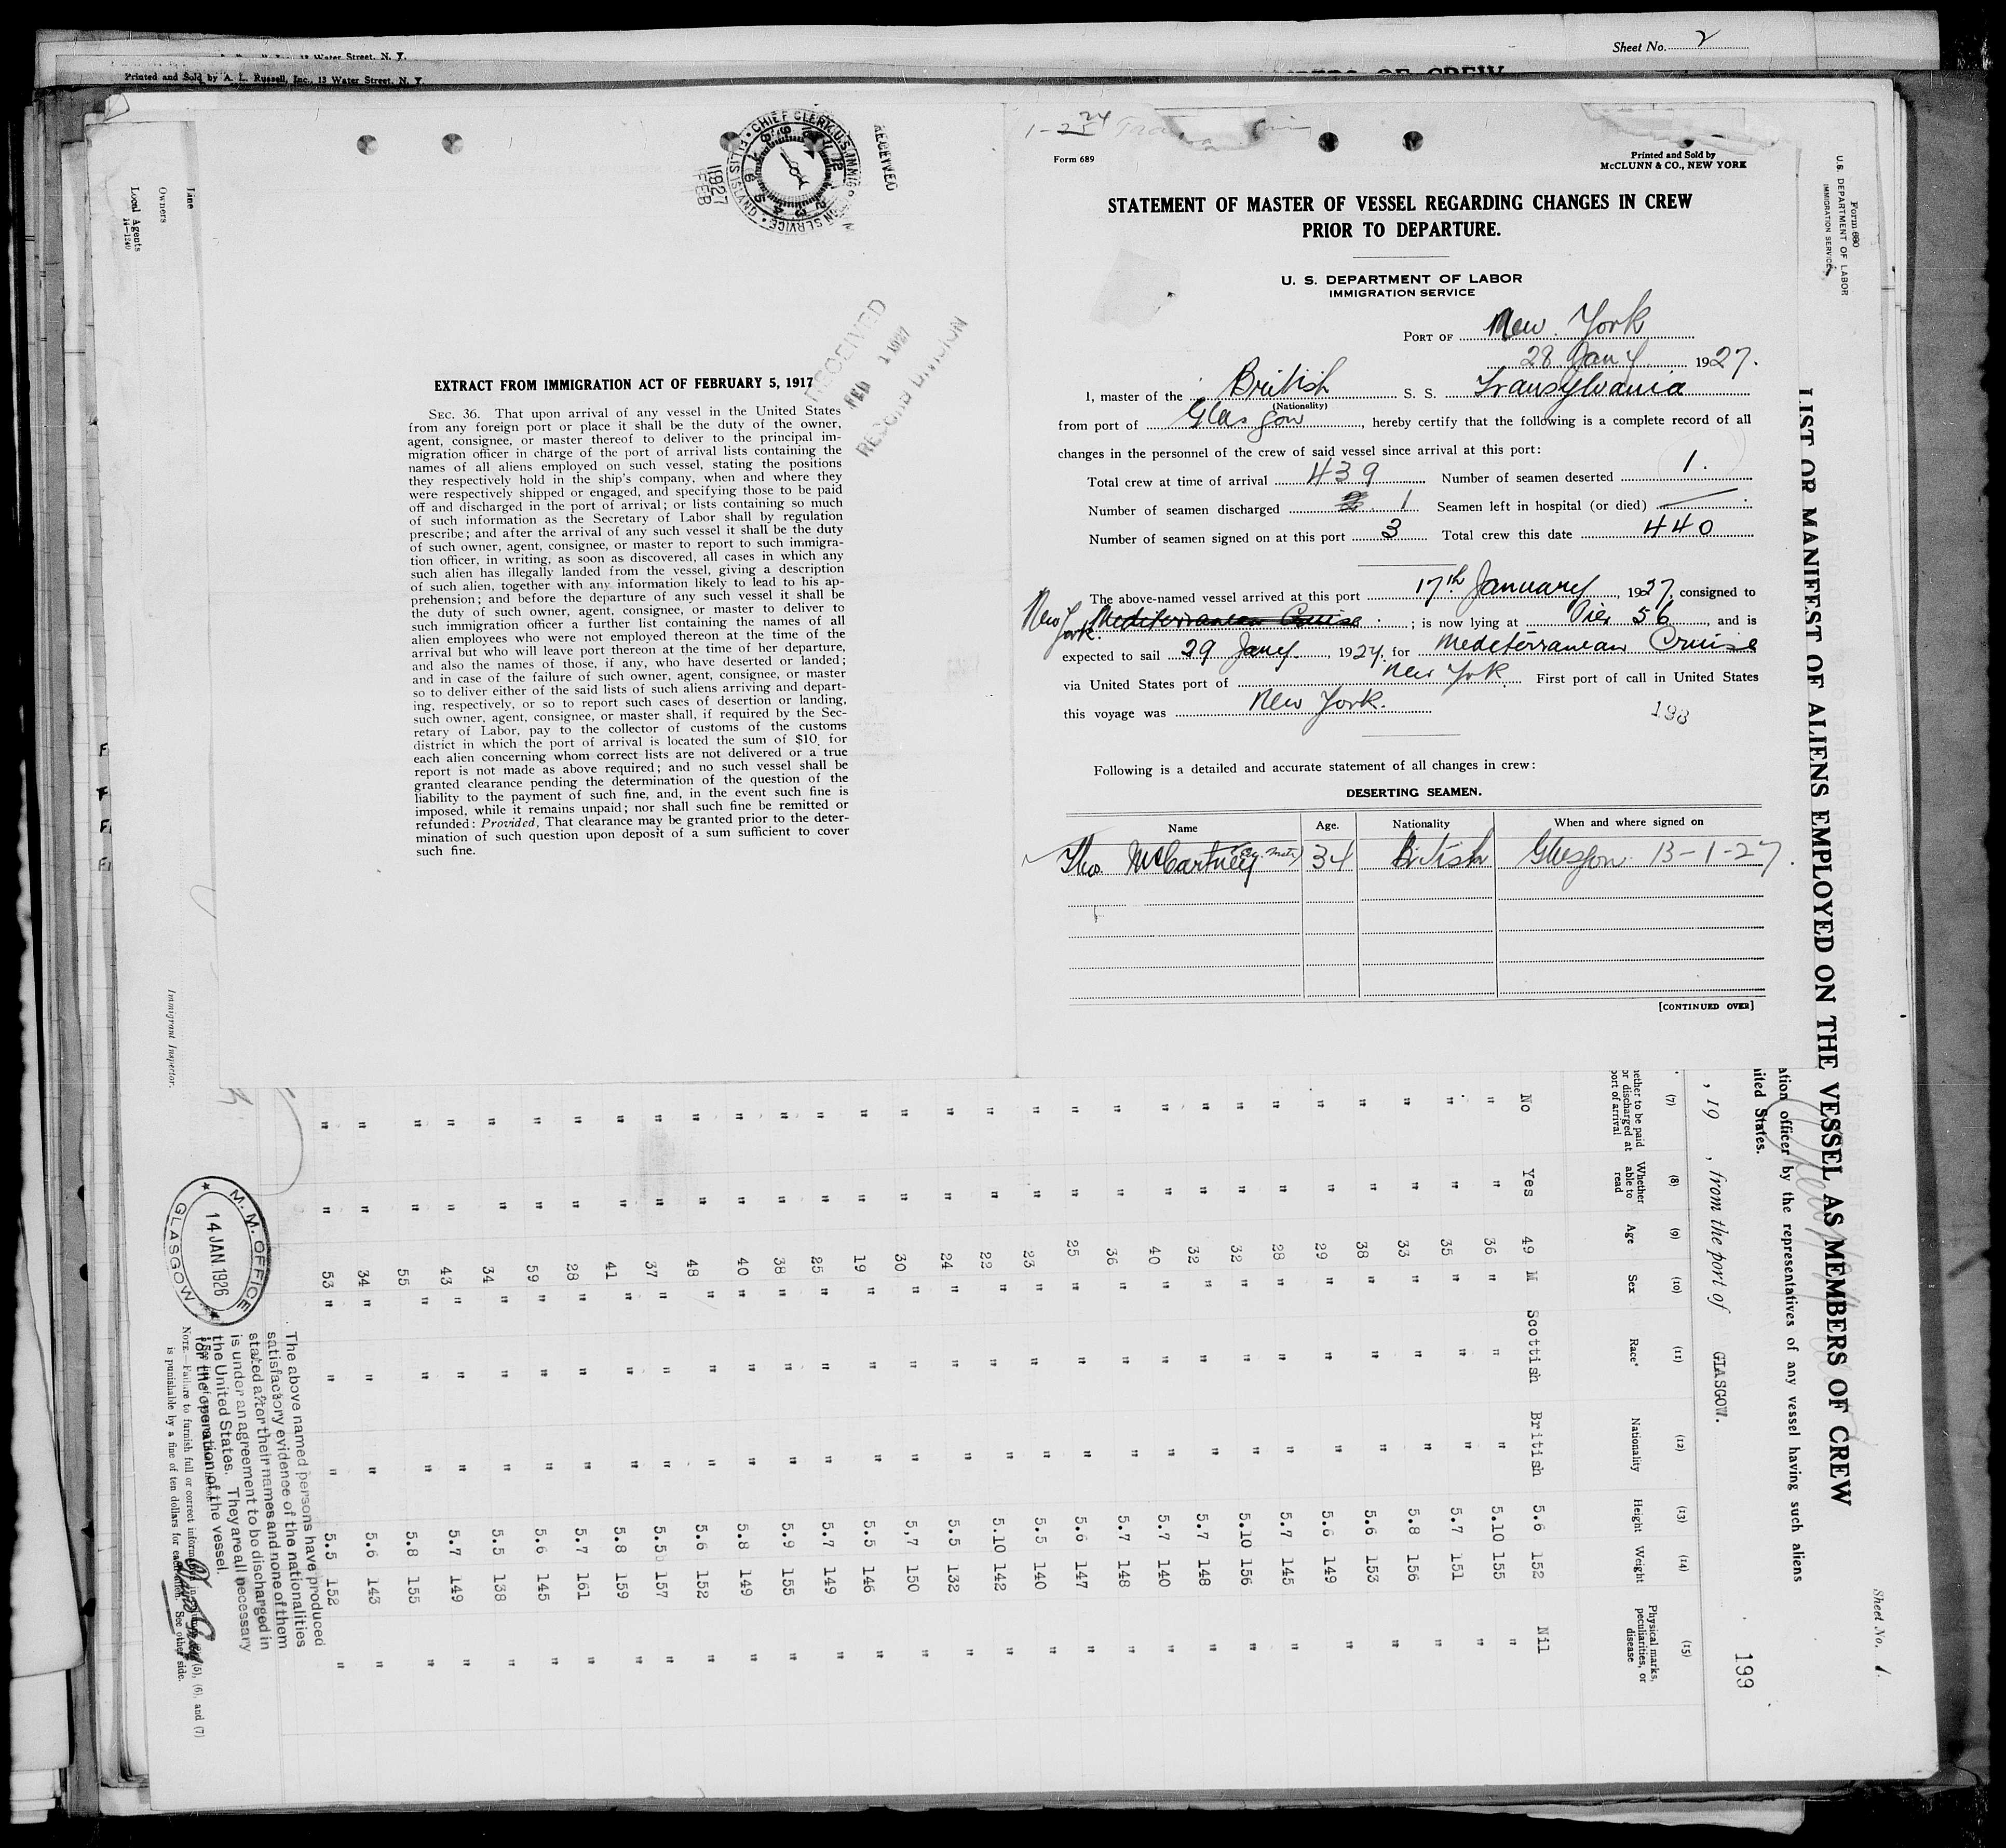 Sheet No. 2
13 Water Street, N. Y.
Printed and Sold by A. L. Russell, Inc., 13 Water Street, N. Y.
Line
Owners
Local Agents
14—1240
Immigrant Inspector.
CHIEF CLERK, U.S. IMMIGRATION SERVICE
ELLIS ISLAND
RECEIVED
1927
FEB
RECEIVED
FEB 1 1927
RECORD DIVISION
EXTRACT FROM IMMIGRATION ACT OF FEBRUARY 5, 1917
SEC. 36. That upon arrival of any vessel in the United States
from any foreign port or place it shall be the duty of the owner,
agent, consignee, or master thereof to deliver to the principal im-
migration officer in charge of the port of arrival lists containing the
names of all aliens employed on such vessel, stating the positions
they respectively hold in the ship's company, when and where they
were respectively shipped or engaged, and specifying those to be paid
off and discharged in the port of arrival; or lists containing so much
of such information as the Secretary of Labor shall by regulation
prescribe; and after the arrival of any such vessel it shall be the duty
of such owner, agent, consignee, or master to report to such immigra-
tion officer, in writing, as soon as discovered, all cases in which any
such alien has illegally landed from the vessel, giving a description
of such alien, together with any information likely to lead to his ap-
prehension; and before the departure of any such vessel it shall be
the duty of such owner, agent, consignee, or master to deliver to
such immigration officer a further list containing the names of all
alien employees who were not employed thereon at the time of the
arrival but who will leave port thereon at the time of her departure,
and also the names of those, if any, who have deserted or landed;
and in case of the failure of such owner, agent, consignee, or master
so to deliver either of the said lists of such aliens arriving and depart-
ing, respectively, or so to report such cases of desertion or landing,
such owner, agent, consignee, or master shall, if required by the Sec-
retary of Labor, pay to the collector of customs of the customs
district in which the port of arrival is located the sum of $10 for
each alien concerning whom correct lists are not delivered or a true
report is not made as above required; and no such vessel shall be
granted clearance pending the determination of the question of the
liability to the payment of such fine, and, in the event such fine is
imposed, while it remains unpaid; nor shall such fine be remitted or
refunded: Provided, That clearance may be granted prior to the deter-
mination of such question upon deposit of a sum sufficient to cover
such fine.
Form 689
Printed and Sold by
McCLUNN & CO., NEW YORK
STATEMENT OF MASTER OF VESSEL REGARDING CHANGES IN CREW
PRIOR TO DEPARTURE.
U. S. DEPARTMENT OF LABOR
IMMIGRATION SERVICE
PORT OF New York
28 Jany 1927.
I, master of the British S. S. Transylvania
(Nationality)
from port of Glasgow, hereby certify that the following is a complete record of all
changes in the personnel of the crew of said vessel since arrival at this port:
Total crew at time of arrival 439 Number of seamen deserted 1.
Number of seamen discharged 1 Seamen left in hospital (or died)
Number of seamen signed on at this port 3 Total crew this date 440
The above-named vessel arrived at this port 17th January, 1927, consigned to
New York. Mediterranean Cruise; is now lying at Pier 56, and is
expected to sail 29 Jany, 1927, for Mediterranean Cruise
via United States port of New York. First port of call in United States
this voyage was New York.
198
Following is a detailed and accurate statement of all changes in crew:
DESERTING SEAMEN.
Name Age. Nationality When and where signed on
Thos. McCartney 34 British Glasgow 13-1-27.
[CONTINUED OVER]
Form 680
U. S. DEPARTMENT OF LABOR
IMMIGRATION SERVICE
LIST OR MANIFEST OF ALIENS EMPLOYED ON THE VESSEL AS MEMBERS OF CREW
Sheet No. 1.
ation officer by the representatives of any vessel having such aliens
ited States.
199
, 19 , from the port of GLASGOW.
(7) (8) (9) (10) (11) (12) (13) (14) (15)
hether to be paid or discharged at port of arrival Whether able to read Age Sex Race* Nationality Height Weight Physical marks, peculiarities, or disease
No Yes 49 M Scottish British 5.6 152 Nil
" " 36 " " " 5.10 155 "
" " 35 " " " 5.7 151 "
" " 33 " " " 5.8 156 "
" " 38 " " " 5.6 153 "
" " 29 " " " 5.6 149 "
" " 28 " " " 5.7 145 "
" " 32 " " " 5.10 156 "
" " 32 " " " 5.7 148 "
" " 40 " " " 5.7 140 "
" " 36 " " " 5.7 148 "
" " 25 " " " 5.6 147 "
" " 23 " " " 5.5 140 "
" " 22 " " " 5.10 142 "
" " 24 " " " 5.5 132 "
" " 30 " " " 5,7 150 "
" " 19 " " " 5.5 146 "
" " 25 " " " 5.7 149 "
" " 38 " " " 5.9 155 "
" " 40 " " " 5.8 149 "
" " 48 " " " 5.6 152 "
" " 37 " " " 5.5 157 "
" " 41 " " " 5.8 159 "
" " 28 " " " 5.7 161 "
" " 59 " " " 5.6 145 "
" " 34 " " " 5.5 138 "
" " 43 " " " 5.7 149 "
" " 55 " " " 5.8 155 "
" " 34 " " " 5.6 143 "
" " 53 " " " 5.5 152 "
The above named persons have produced
satisfactory evidence of the nationalities
stated after their names and none of them
is under an agreement to be discharged in
the United States. They are all necessary
for the operation of the vessel.
M. M. OFFICE
14 JAN 1926
GLASGOW
NOTE.—Failure to furnish full or correct information in columns (5), (6), and (7)
is punishable by a fine of ten dollars for each alien. See other side.